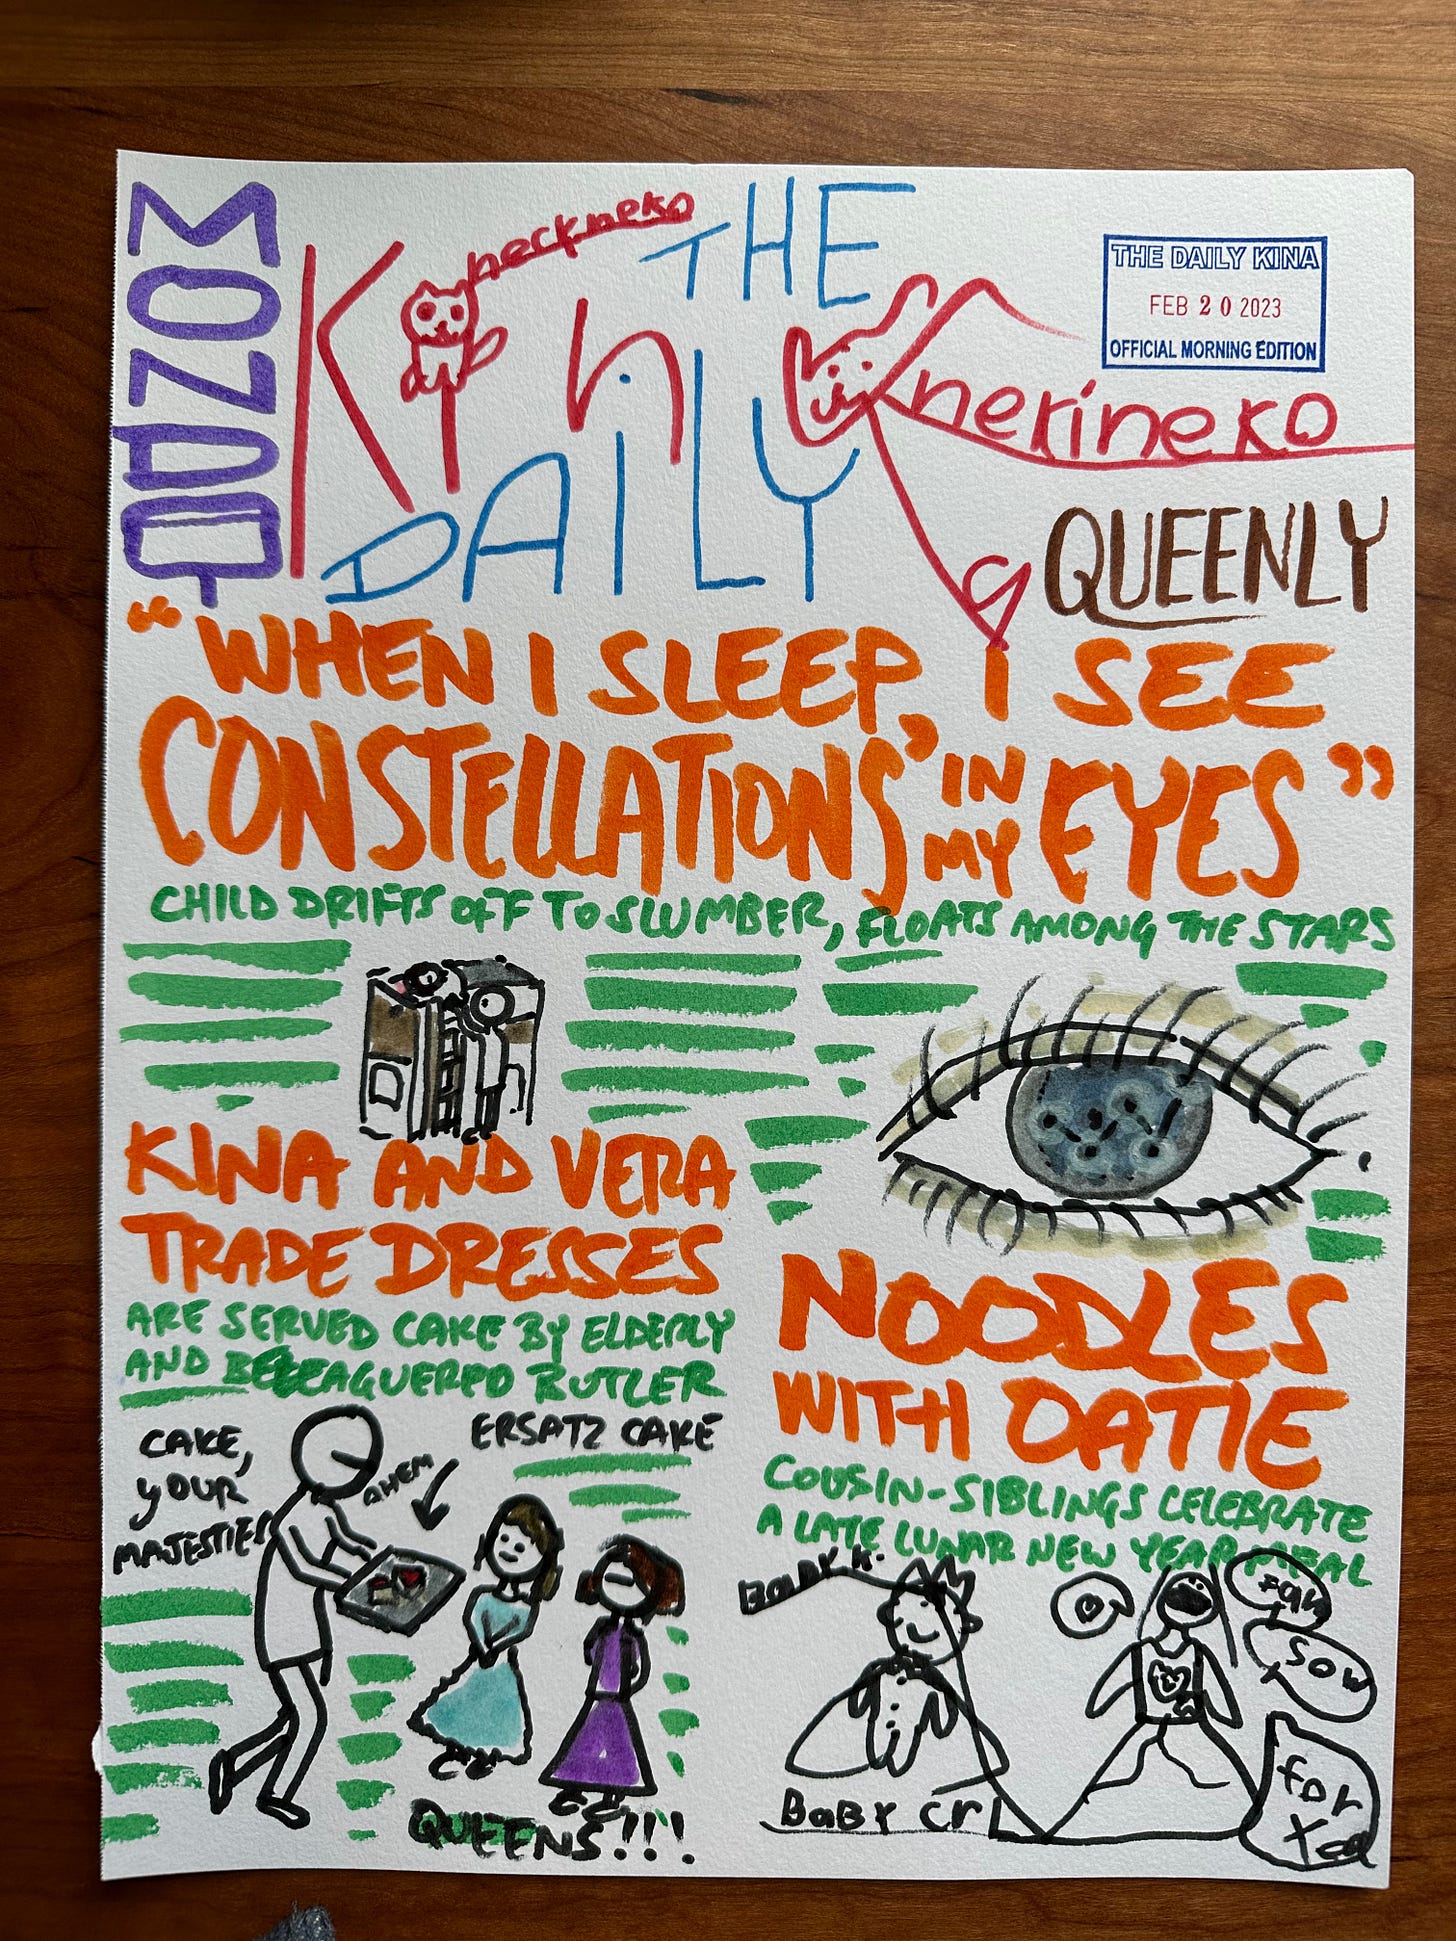 MONDO
THE
DAILY
Kina
neckneko
nekineko
THE DAILY KINA
FEB 20 2023
OFFICIAL MORNING EDITION
QUEENLY
“WHEN I SLEEP, I SEE
‘CONSTELLATIONS’ IN MY EYES”
CHILD DRIFTS OFF TO SLUMBER, FLOATS AMONG THE STARS
KINA AND VERA
TRADE DRESSES
ARE SERVED CAKE BY ELDERLY
AND BELEAGUERED BUTLER
CAKE,
YOUR
MAJESTIES
AHEM
ERSATZ CAKE
QUEENS!!!
NOODLES
WITH OATIE
COUSIN-SIBLINGS CELEBRATE
A LATE LUNAR NEW YEAR MEAL
BaBY
Sow
for